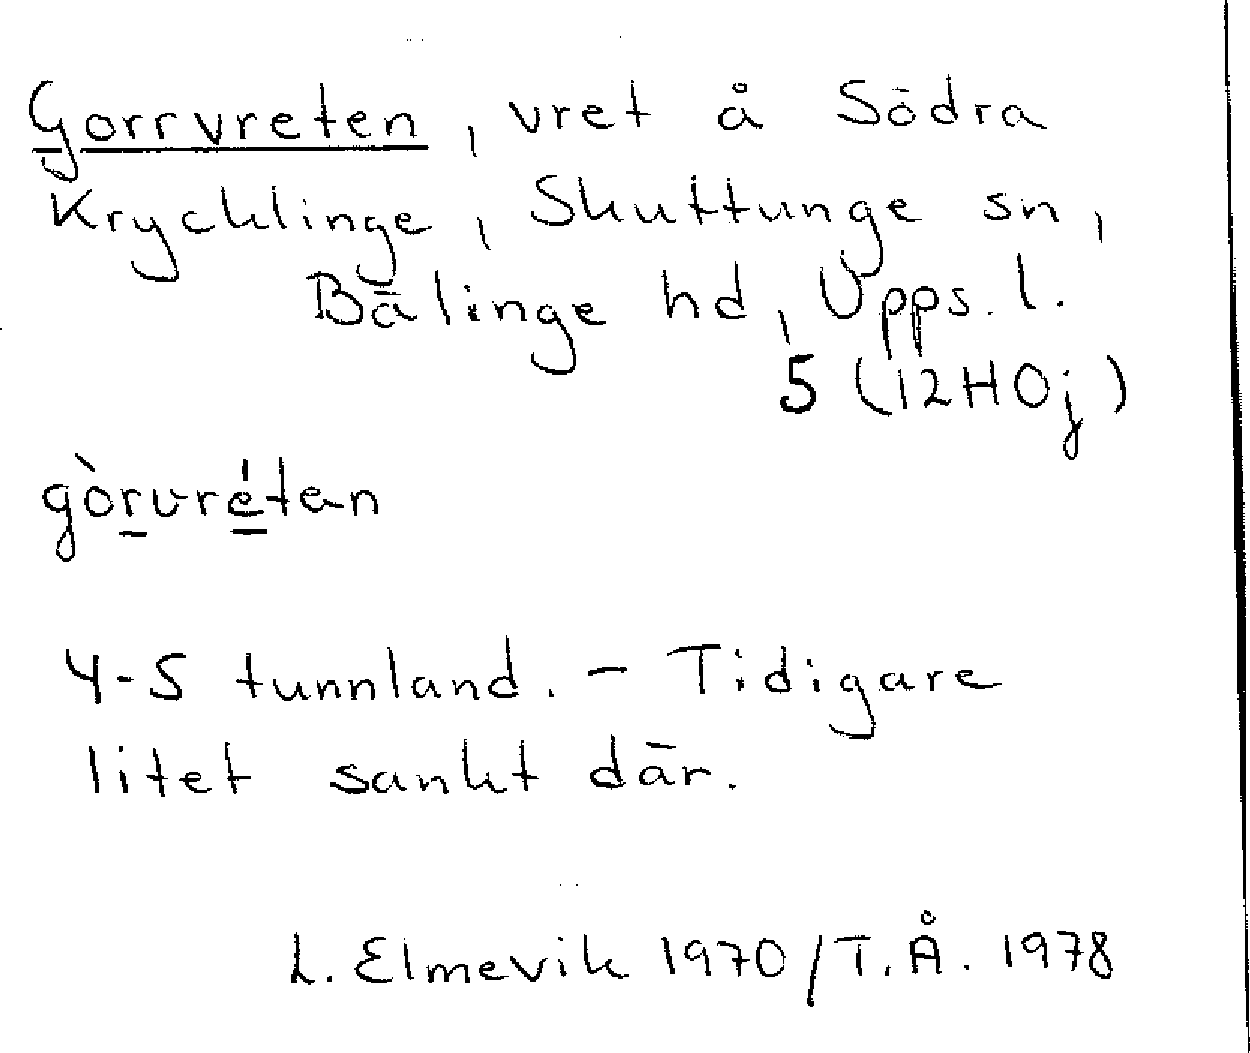 Gorrvreten, vret å Södra
Krycklinge, Skuttunge sn,
Bälinge hd, Upps. l.
5 (12H0j)
gòrvrétan
4-5 tunnland. – Tidigare
litet sankt där.
L. Elmevik 1970/T.Å. 1978